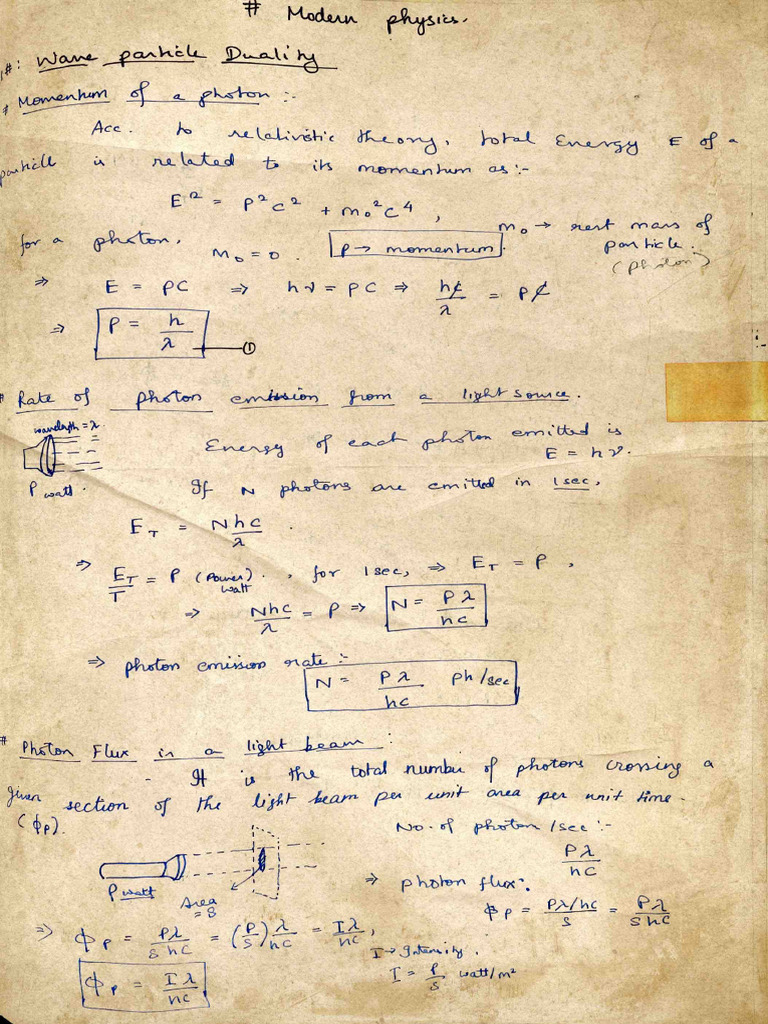 # Modern physics.
1#: Wave particle Duality
* Momentum of a photon :-
Acc. to relativistic theory, total Energy E of a
particle is related to its momentum as :-
E² = P²C² + m₀²C⁴ ,
m₀ → rest mass of
particle.
(photon)
for a photon, m₀ = 0. P → momentum.
⇒ E = PC ⇒ hν = PC ⇒ hc/λ = Pc
⇒ P = h/λ —①
# Rate of photon emission from a light source.
wavelength = λ
P watt.
Energy of each photon emitted is
E = hν.
If N photons are emitted in 1sec,
E_T = Nhc/λ .
⇒ E_T/T = P (Power) watt. , for 1sec, ⇒ E_T = P ,
⇒ Nhc/λ = P ⇒ N = Pλ/hc
⇒ photon emission rate :-
N = Pλ/hc ph/sec
# Photon Flux in a light beam :
- It is the total number of photons crossing a
given section of the light beam per unit area per unit time.
(ϕ_P).
P watt
Area = S
No. of photon /sec :-
Pλ/hc
⇒ photon flux :
ϕ_P = Pλ/hc/S = Pλ/Shc
⇒ ϕ_P = Pλ/Shc = (P/S) λ/hc = Iλ/hc ,
I → Intensity.
I = P/S watt/m²
ϕ_P = Iλ/hc